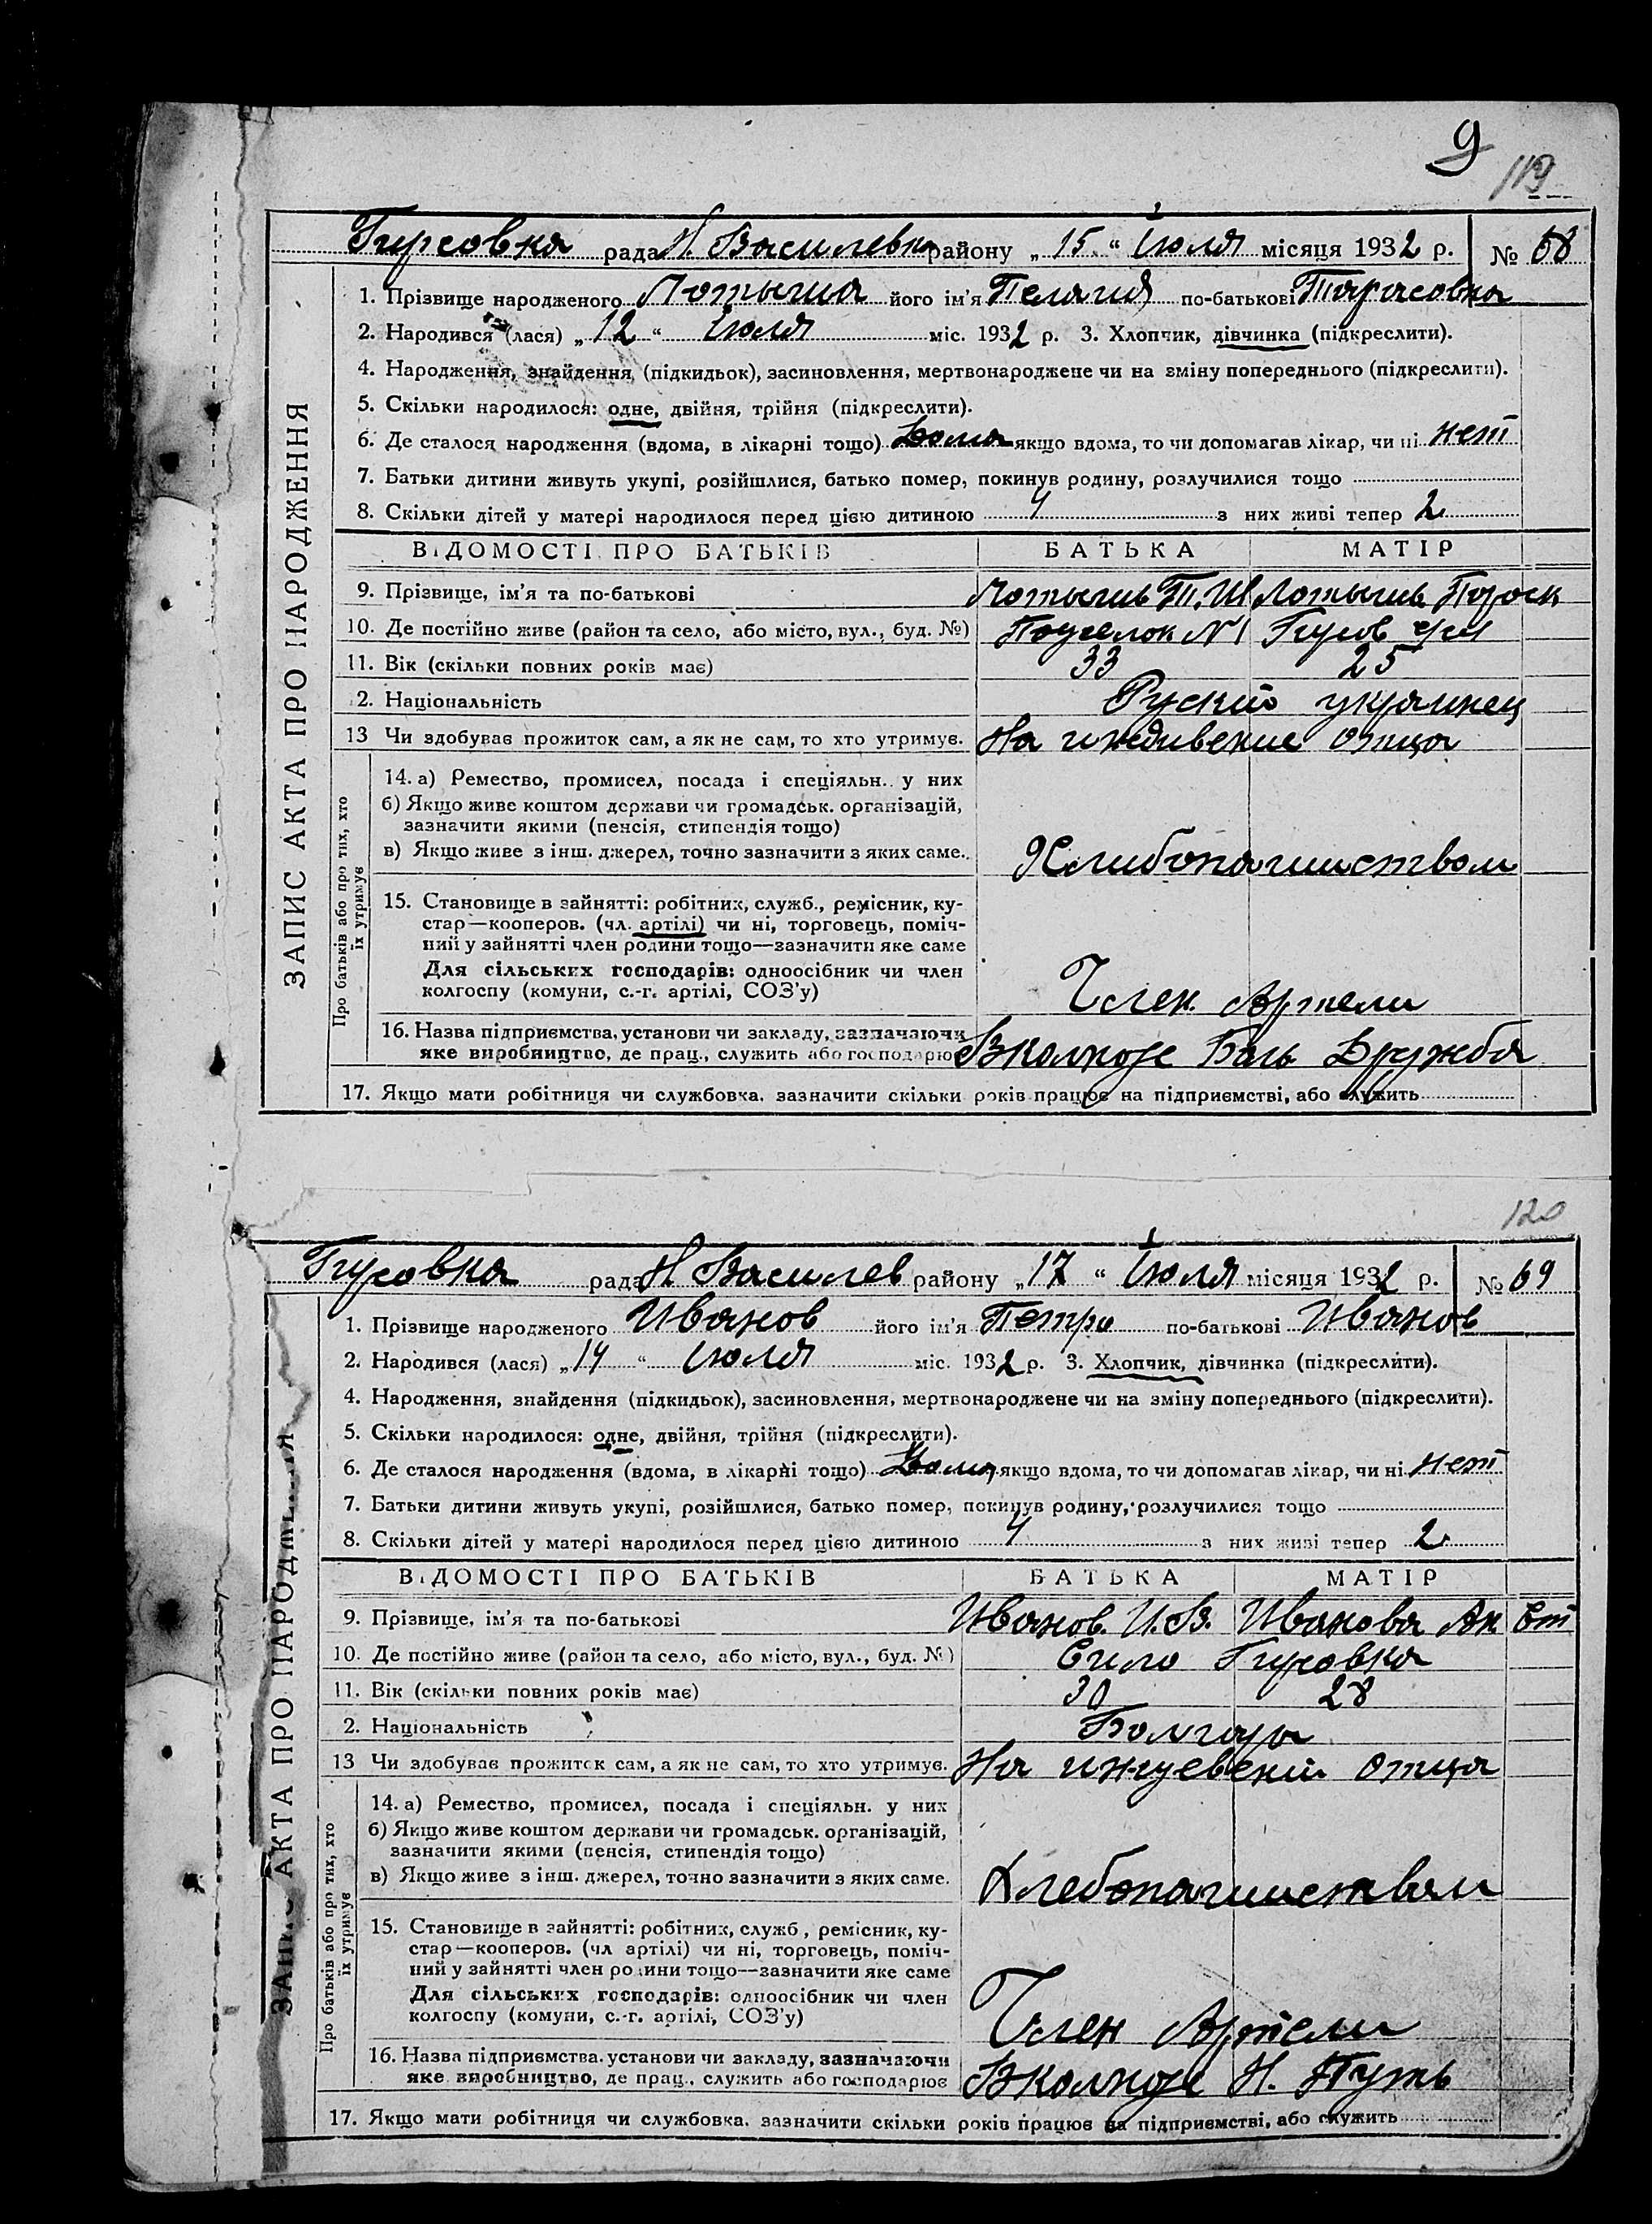 9
119
Гирсовка рада Н. Василевка району „ 15 “ Июля місяця 1932 р. № 68
ЗАПИС АКТА ПРО НАРОДЖЕННЯ
1. Прізвище народженого Лотыша його ім'я Пелагия по-батькові Тарасовна
2. Народився (лася) „ 12 “ Июля міс. 1932 р. 3. Хлопчик, дівчинка (підкреслити).
4. Народження, знайдення (підкидьок), засиновлення, мертвонароджене чи на зміну попереднього (підкреслити).
5. Скільки народилося: одне, двійня, трійня (підкреслити).
6. Де сталося народження (вдома, в лікарні тощо) Дома якщо вдома, то чи допомагав лікар, чи ні нет
7. Батьки дитини живуть укупі, розійшлися, батько помер, покинув родину, розлучилися тощо
8. Скільки дітей у матері народилося перед цією дитиною 4 з них живі тепер 2
ВІДОМОСТІ ПРО БАТЬКІВ БАТЬКА МАТІР
9. Прізвище, ім'я та по-батькові Лотышь Т. Лотышь Проск
10. Де постійно живе (район та село, або місто, вул., буд. №) Посселок N 1 Гирсов
11. Вік (скільки повних років має) 33 25
2. Національність Руский украинец
13 Чи здобуває прожиток сам, а як не сам, то хто утримує. На иждивение отца
Про батьків або про тих, хто їх утримує
14. а) Ремество, промисел, посада і спеціяльн. у них
б) Якщо живе коштом держави чи громадськ. організацій,
зазначити якими (пенсія, стипендія тощо)
в) Якщо живе з інш. джерел, точно зазначити з яких саме. Хлибопашиством
15. Становище в зайнятті: робітник, служб., ремісник, ку-
стар—кооперов. (чл. артілі) чи ні, торговець, поміч-
ний у зайнятті член родини тощо—зазначити яке саме
Для сільських господарів: одноосібник чи член
колгоспу (комуни, с.-г. артілі, СОЗ'у) Член Артели
16. Назва підприємства, установи чи закладу, зазначаючи
яке виробництво, де прац., служить або господарює В колхозе Боль Дружба
17. Якщо мати робітниця чи службовка, зазначити скільки років працює на підприємстві, або служить
120
Гирсовка рада Н Василев району „ 17 “ Июля місяця 1932 р. № 69
ЗАПИС АКТА ПРО НАРОДЖЕННЯ
1. Прізвище народженого Иванов його ім'я Петро по-батькові Иванов
2. Народився (лася) „ 14 “ Июля міс. 1932 р. 3. Хлопчик, дівчинка (підкреслити).
4. Народження, знайдення (підкидьок), засиновлення, мертвонароджене чи на зміну попереднього (підкреслити).
5. Скільки народилося: одне, двійня, трійня (підкреслити).
6. Де сталося народження (вдома, в лікарні тощо) Дома, якщо вдома, то чи допомагав лікар, чи ні нет
7. Батьки дитини живуть укупі, розійшлися, батько помер, покинув родину, розлучилися тощо
8. Скільки дітей у матері народилося перед цією дитиною 4 з них живі тепер 2
ВІДОМОСТІ ПРО БАТЬКІВ БАТЬКА МАТІР
9. Прізвище, ім'я та по-батькові Иванов. И.В. Иванова Ан Ст
10. Де постійно живе (район та село, або місто, вул., буд. №) Сило Гирсовка
11. Вік (скільки повних років має) 30 28
2. Національність Болгары
13 Чи здобуває прожиток сам, а як не сам, то хто утримує. На отца
Про батьків або про тих, хто їх утримує
14. а) Ремество, промисел, посада і спеціяльн. у них
б) Якщо живе коштом держави чи громадськ. організацій,
зазначити якими (пенсія, стипендія тощо)
в) Якщо живе з інш. джерел, точно зазначити з яких саме. Хлебопашиством
15. Становище в зайнятті: робітник, служб., ремісник, ку-
стар—кооперов. (чл артілі) чи ні, торговець, поміч-
ний у зайнятті член родини тощо—зазначити яке саме
Для сільських господарів: одноосібник чи член
колгоспу (комуни, с.-г. артілі, СОЗ'у) Член Артели
16. Назва підприємства, установи чи закладу, зазначаючи
яке виробництво, де прац., служить або господарює В колхозе Н. Путь
17. Якщо мати робітниця чи службовка, зазначити скільки років працює на підприємстві, або служить